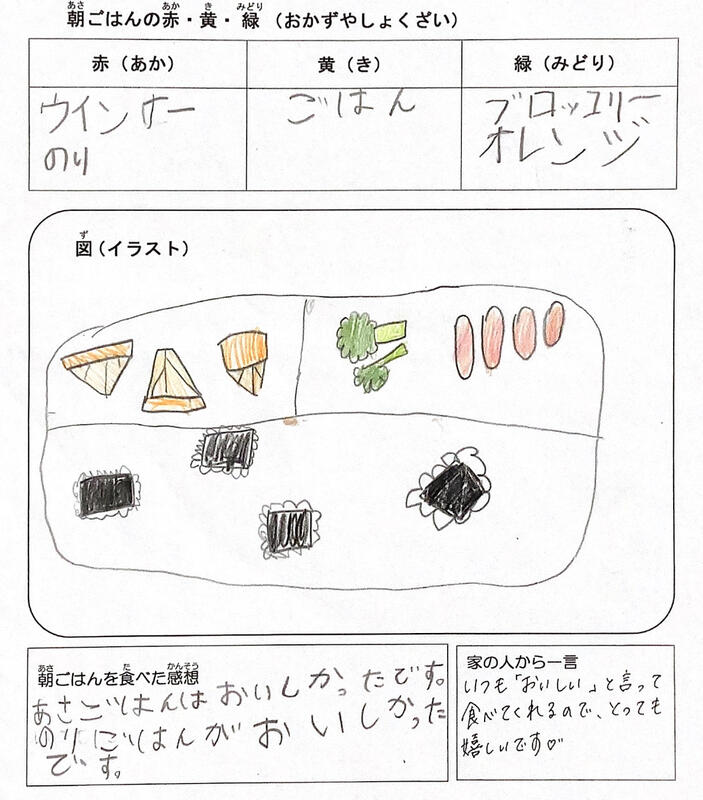 朝ごはんの赤・黄・緑（おかずやしょくざい）
赤（あか）
黄（き）
緑（みどり）
ウインナー
のり
ごはん
ブロッコリー
オレンジ
図（イラスト）
朝ごはんを食べた感想
あさごはんはおいしかったです。
のりごはんがおいしかった
です。
家の人から一言
いつも「おいしい」と言って
食べてくれるので、とっても
嬉しいです♡